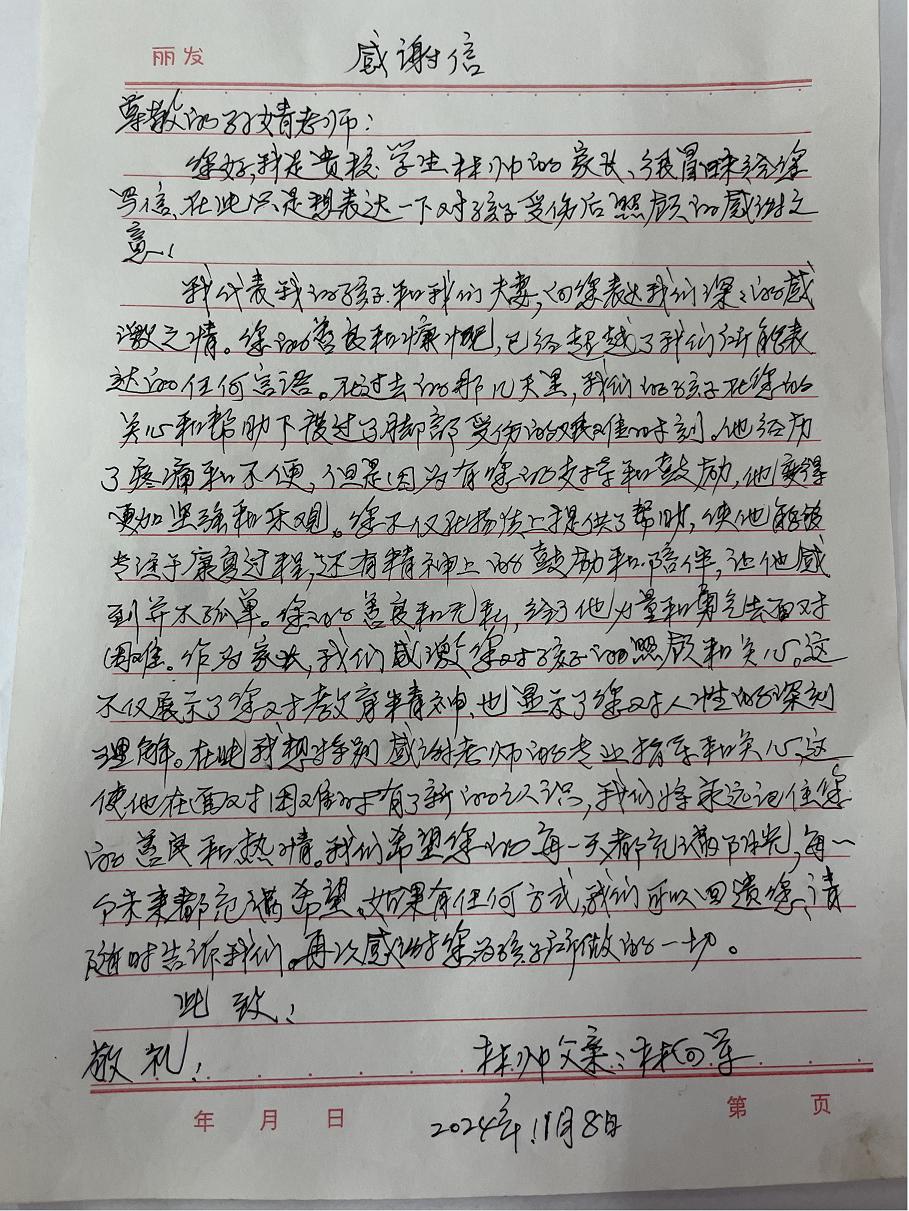 丽发 感谢信
尊敬的孙婧老师：
您好，我是贵校学生林帅的家长、很冒昧给您
写信、在此只是想表达一下对孩子受伤后照顾的感谢之
意、！
我代表我的孩子和我们夫妻，向您表达我们深深的感
激之情。您的善良和慷慨，已经超越了我们所能表
达的任何言语。在过去的那几天里，我们的孩子在您的
关心和帮助下度过了脚部受伤的艰难时刻。他经历
了疼痛和不便，但是因为有您的支持和鼓励，他变得
更加坚强和乐观。您不仅在物质上提供了帮助，使他能够
专注于康复过程，还有精神上的鼓励和陪伴，让他感
到并不孤单。您的善良和无私，给了他力量和勇气去面对
困难。作为家长，我们感激您对孩子的照顾和关心。这
不仅展示了您对教育精神、也显示了您对人性的深刻
理解。在此我想特别感谢老师的专业指导和关心，这
使他在面对困难时有了新的认识，我们将永远记住您
的善良和热情。我们希望您的每一天都充满阳光，每一
个未来都充满希望、如果有任何方式，我们可以回馈您、请
随时告诉我们。再次感谢您为孩子所做的一切。
此致！
敬礼！ 林帅父亲：林向军
年 月 日 2024年11月8日 第 页